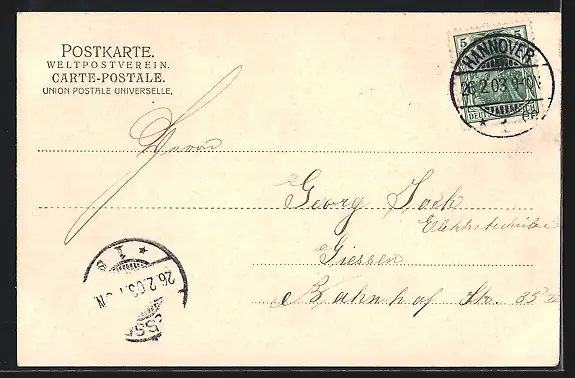 POSTKARTE.
WELTPOSTVEREIN.
CARTE-POSTALE.
UNION POSTALE UNIVERSELLE.
5 5
HANNOVER
26.2.03.
1
Herrn
Georg
Elektrotechniker
Giessen
Bahnhof Str. 35
1
26.2.03.